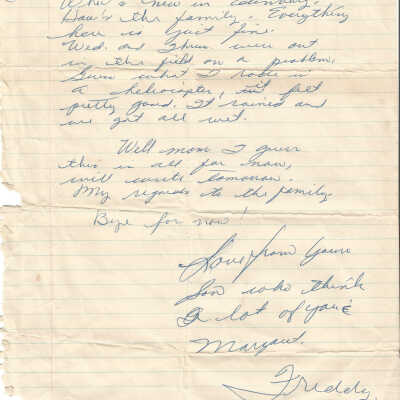 What's new in
How's the family. Everything
here is just fine.
Wed. and Thurs. were out
in the field on a problem.
Guess what I rode in
a helicopter, it felt
pretty good. It rained and
we got all wet.
Well mom I guess
this is all for now,
will write tomorrow.
My regards to the family.
Bye for now!
Love from your
Son who think
a lot of you &
Margaret.
Freddy